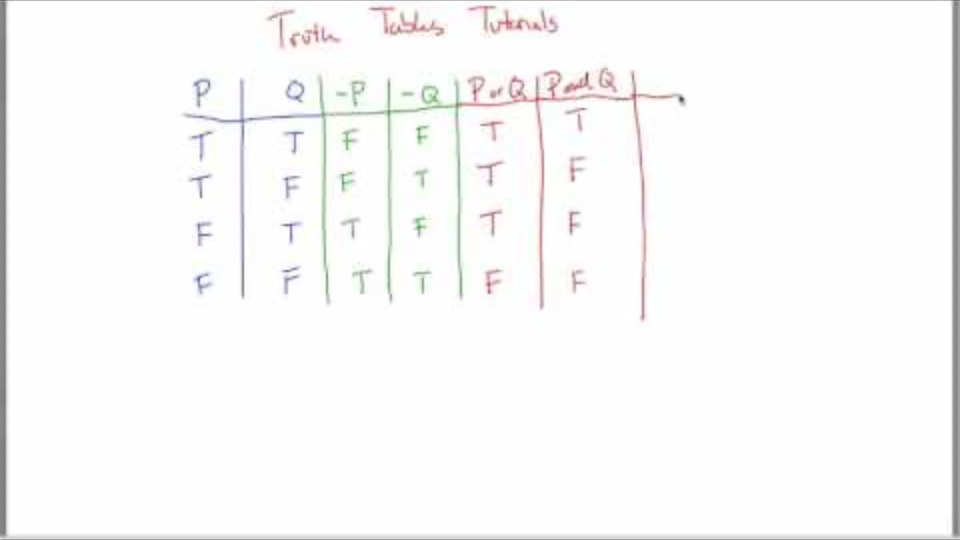 Truth Tables Tutorials
P Q -P -Q P or Q P and Q
T T F F T T
T F F T T F
F T T F T F
F F T T F F